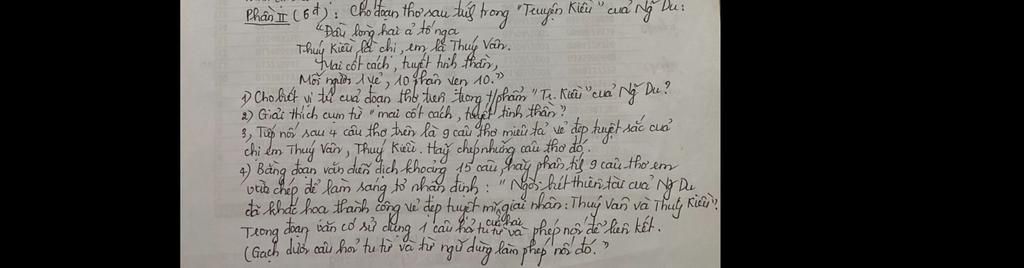 Phần II (6đ): Cho đoạn thơ sau trích trong "Truyện Kiều" của Ng Du:
"Đầu lòng hai ả tố nga
Thuý Kiều là chị, em là Thuý Vân.
Mai cốt cách, tuyết tinh thần,
Mỗi người 1 vẻ, 10 phân vẹn 10."
1) Cho biết vị trí của đoạn thơ trên trong t/phẩm "Tr. Kiều" của Ng Du?
2) Giải thích cụm từ "mai cốt cách, tuyết tinh thần"?
3, Tiếp nối sau 4 câu thơ trên là 9 câu thơ miêu tả vẻ đẹp tuyệt sắc của
chị em Thuý Vân, Thuý Kiều. Hãy chép những câu thơ đó.
4) Bằng đoạn văn diễn dịch khoảng 15 câu, hãy phân tích 9 câu thơ em
vừa chép để làm sáng tỏ nhận định: "Ngòi bút thiên tài của Ng Du
đã khắc hoạ thành công vẻ đẹp tuyệt mĩ của hai giai nhân: Thuý Vân và Thuý Kiều".
Trong đoạn văn có sử dụng 1 câu hỏi tu từ và phép nối để liên kết.
(Gạch dưới câu hỏi tu từ và từ ngữ dùng làm phép nối đó."